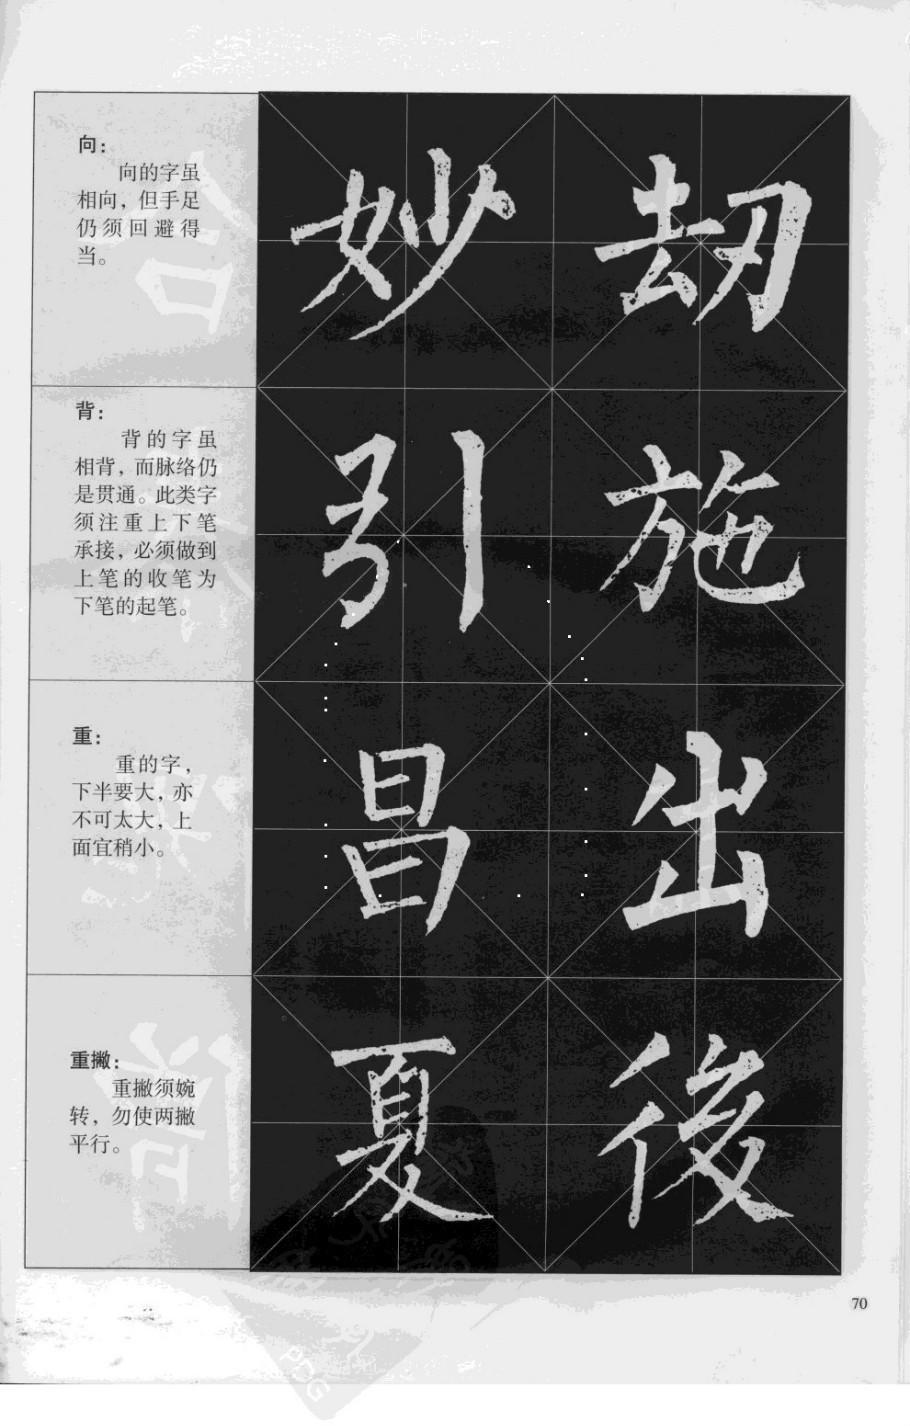 向：
向的字虽
相向，但手足
仍须回避得
当。
妙 劫
背：
背的字虽
相背，而脉络仍
是贯通。此类字
须注重上下笔
承接，必须做到
上笔的收笔为
下笔的起笔。
引 施
重：
重的字，
下半要大，亦
不可太大，上
面宜稍小。
昌 出
重撇：
重撇须婉
转，勿使两撇
平行。
夏 後
70
PDG